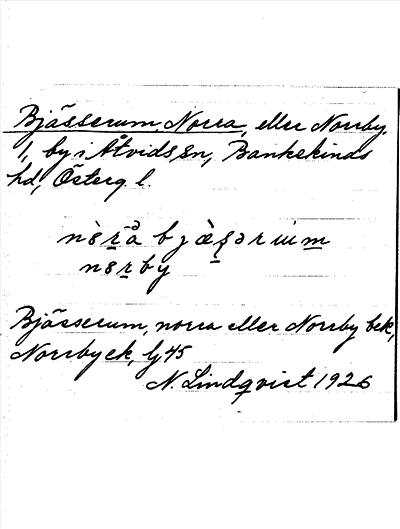 Bjässerum, Norra, eller Norrby
1, by i Åtvids sn, Bankekinds
hd, Österg l.
Bjässerum, norra eller Norrby bek,
Norrby ek, lj 45
N. Lindqvist 1926